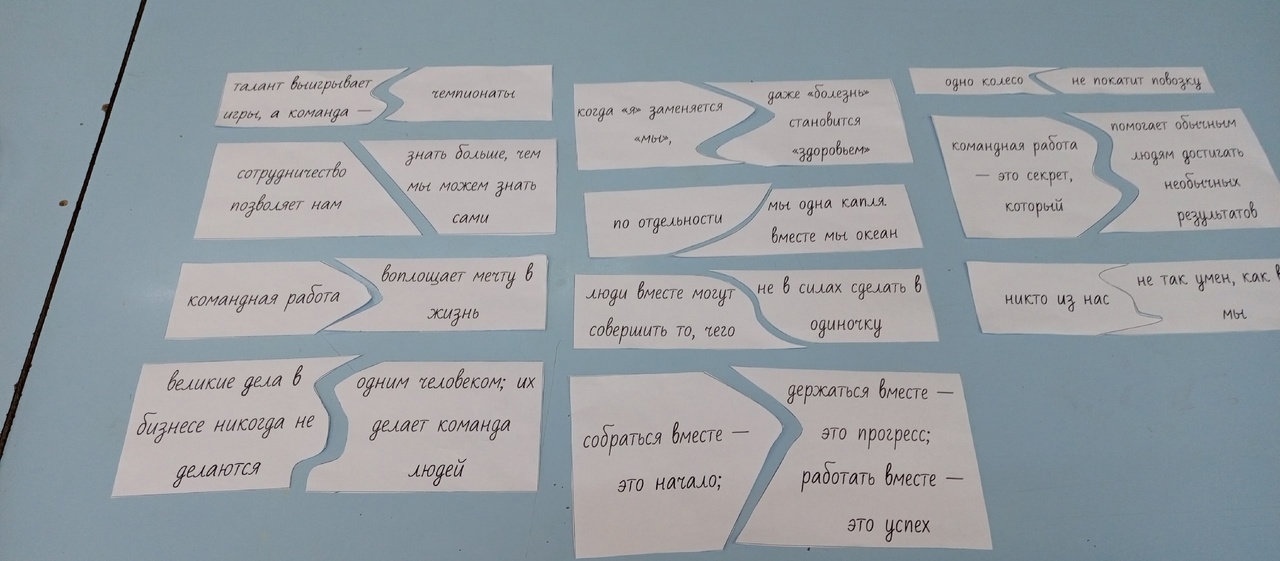 талант выигрывает
игры, а команда —
чемпионаты
сотрудничество
позволяет нам
знать больше, чем
мы можем знать
сами
командная работа
воплощает мечту в
жизнь
великие дела в
бизнесе никогда не
делаются
одним человеком; их
делает команда
людей
когда «я» заменяется
«мы»,
даже «болезнь»
становится
«здоровьем»
по отдельности
мы одна капля.
вместе мы океан
люди вместе могут
совершить то, чего
не в силах сделать в
одиночку
собраться вместе —
это начало;
держаться вместе —
это прогресс;
работать вместе —
это успех
одно колесо
не покатит повозку
командная работа
— это секрет,
который
помогает обычным
людям достигать
необычных
результатов
никто из нас
не так умен, как
мы